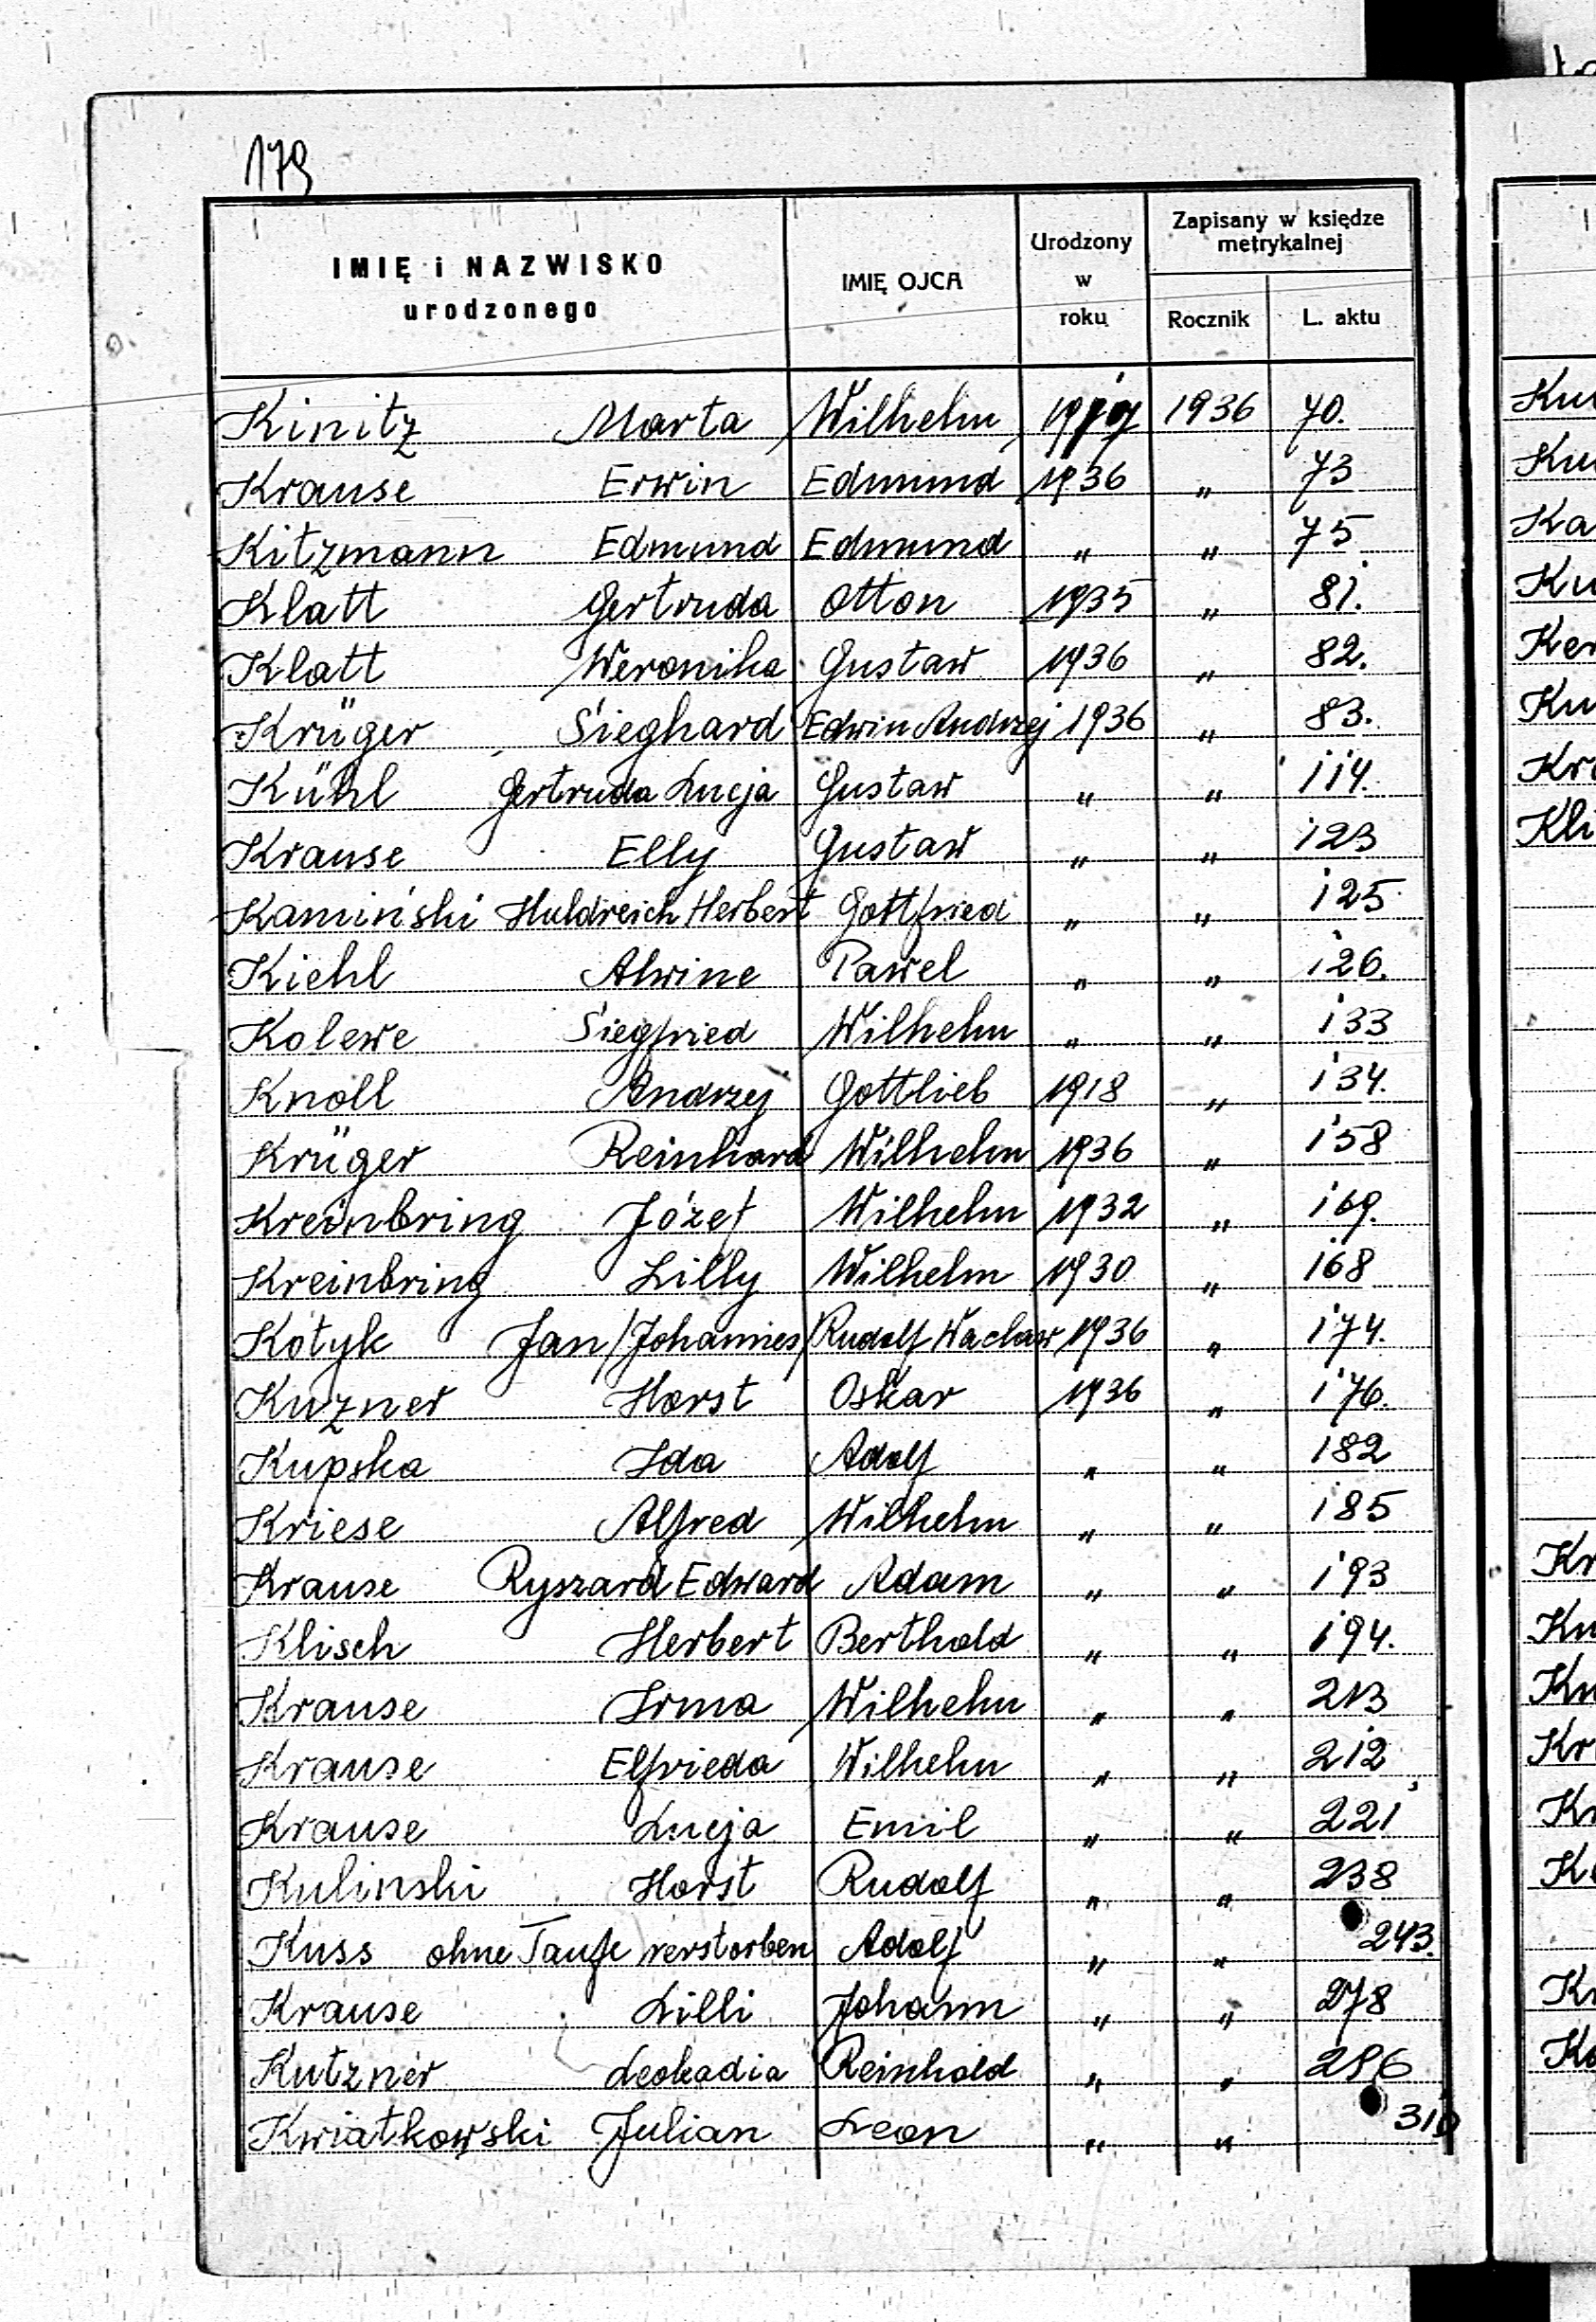 179
IMIĘ i NAZWISKO urodzonego IMIĘ OJCA Urodzony w roku Zapisany w księdze metrykalnej
Rocznik L. aktu
Kinitz Marta Wilhelm 1936 70.
Krause Erwin Edmund 1936 " 73
Kitzmann Edmund Edmund " " 75
Klatt Gertruda Otton 1935 " 81.
Klatt Weronika Gustaw 1936 " 82.
Krüger Sieghard Edwin Andrzej 1936 " 83.
Kühl Gertruda Lucja Gustaw " " 114.
Krause Elly Gustaw " " 123
Kamiński Huldreich Herbert Gottfried " " 125
Kiehl Alwine Pawel " " 126.
Kolewe Siegfried Wilhelm " " 133
Knoll Andrzej Gottlieb 1918 " 134.
Krüger Reinhard Wilhelm 1936 " 158
Kreinbring Józef Wilhelm 1932 " 169.
Kreinbring Lilly Wilhelm 1930 " 168
Kotyk Jan /Johannes/ Rudolf Wacław 1936 " 174.
Kuzner Horst Oskar 1936 " 176.
Kupska Ida Adolf " " 182
Kriese Alfred Wilhelm " " 185
Krause Ryszard Edward Adam " " 193
Klisch Herbert Berthold " " 194.
Krause Irma Wilhelm " " 213
Krause Elfrieda Wilhelm " " 212
Krause Lucja Emil " " 221
Kulinski Horst Rudolf " " 238
Kuss ohne Taufe verstorben Adolf " " 243.
Krause Lilli Johann " " 278
Kutzner Leokadia Reinhold " "
Kwiatkowski Julian Leon " " 310